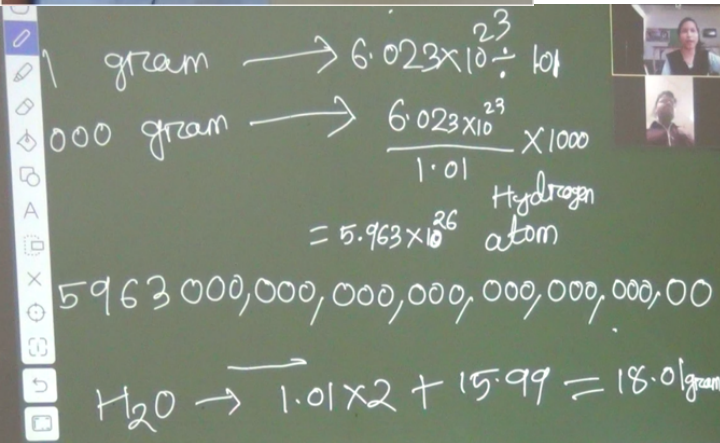 1 gram → 6.023×10²³ ÷ 101
000 gram → 6.023×10²³ / 1.01 ×1000
Hydrogen
= 5.963×10²⁶ atom
5963000,000,000,000,000,000,000,00
H₂O → 1.01×2 + 15.99 = 18.01gram
A